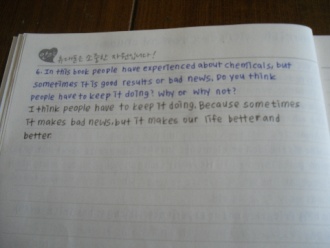 소중한 자원입니다!
6. In this book people have experienced about chemicals, but
sometimes it is good results or bad news. Do you think
people have to keep it doing? Why or why not?
I think people have to keep it doing. Because sometimes
it makes bad news, but it makes our life better and
better.